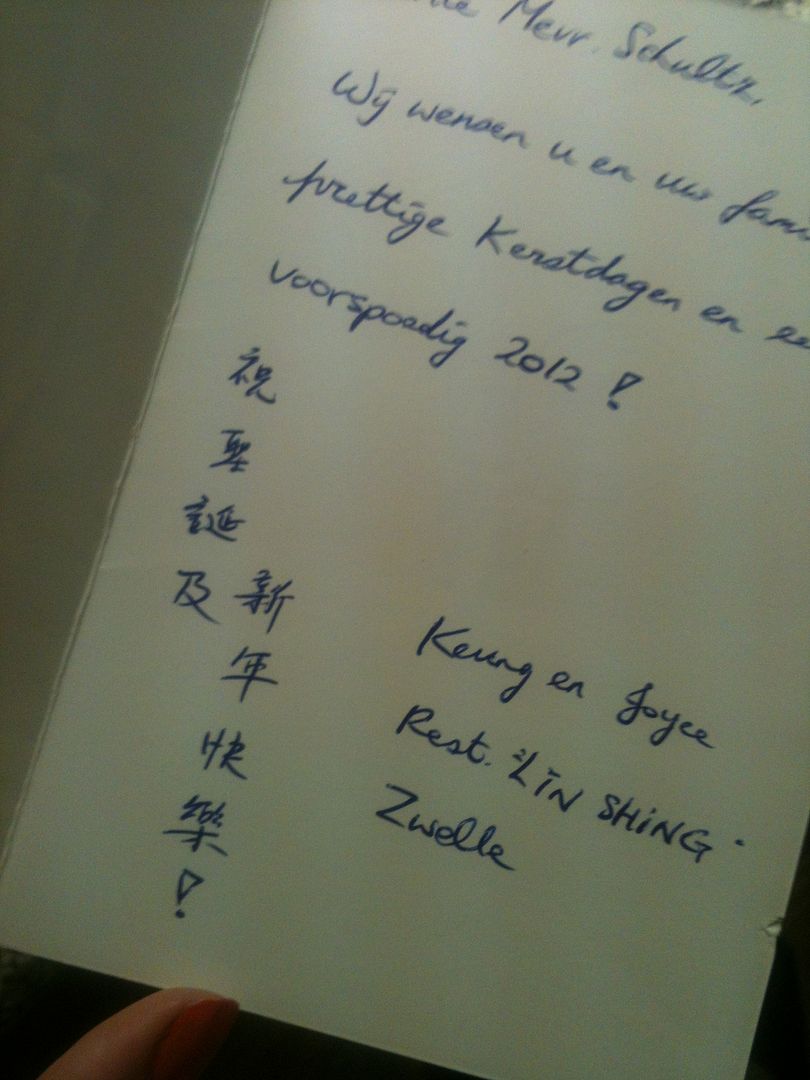 Mevr. Schultz,
Wij wensen u en uw
prettige Kerstdagen en
voorspoedig 2012 !
祝聖誕及
新年快樂!
Keung en Joyce
Rest. "LIN SHING"
Zwolle